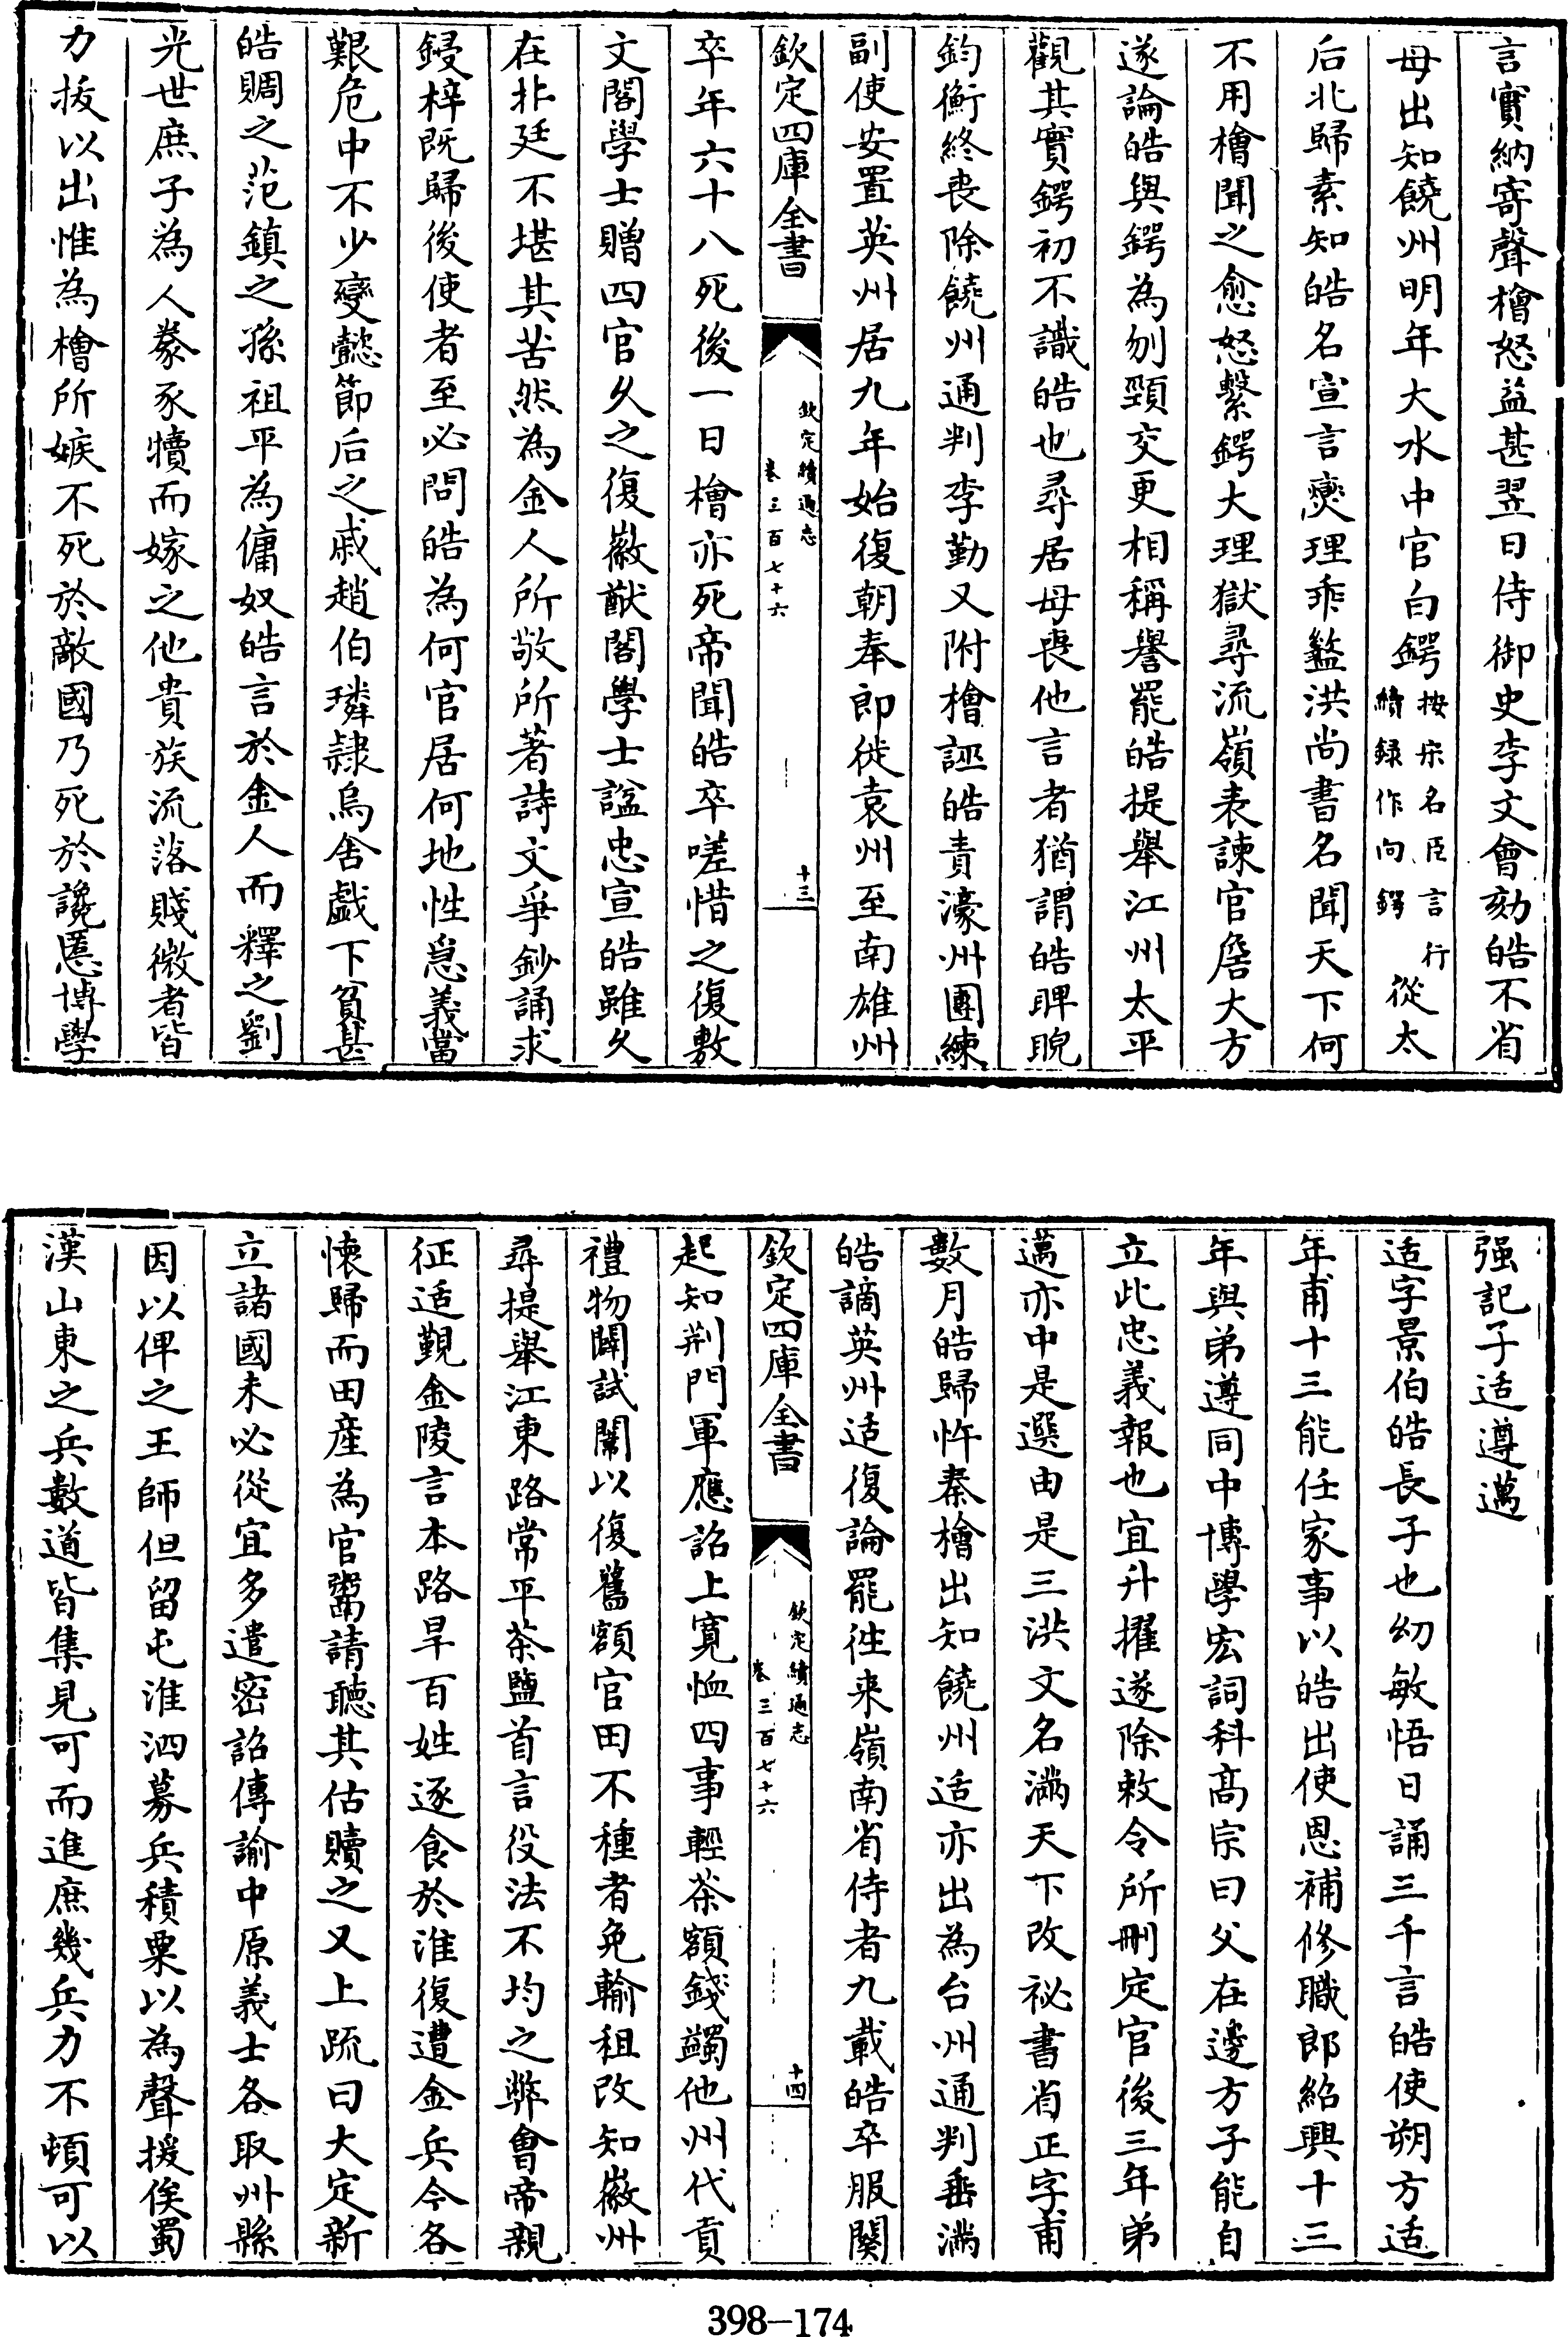 言實納寄聲檜怒益甚翌日侍御史李文會劾皓不省
母出知饒州明年大水中官白鍔按宋名臣言行續録作向鍔從太
后北歸素知皓名宣言爕理乖盭洪尚書名聞天下何
不用檜聞之愈怒繫鍔大理獄尋流嶺表諫官詹大方
遂論皓與鍔為刎頸交更相稱譽罷皓提舉江州太平
觀其實鍔初不識皓也尋居母喪他言者猶謂皓睥睨
鈞衡終喪除饒州通判李勤又附檜誣皓責濠州團練
副使安置英州居九年始復朝奉郎徙袁州至南雄州
欽定四庫全書
欽定續通志
卷三百七十六
十三
卒年六十八死後一日檜亦死帝聞皓卒嗟惜之復敷
文閣學士贈四官久之復徽猷閣學士諡忠宣皓雖久
在北廷不堪其苦然為金人所敬所著詩文爭鈔誦求
鋟梓既歸後使者至必問皓為何官居何地性急義當
艱危中不少變懿節后之戚趙伯璘隷烏舎戯下貧甚
皓賙之范鎮之孫祖平為傭奴皓言於金人而釋之劉
光世庶子為人豢豕贖而嫁之他貴族流落賤微者皆
力拔以出惟為檜所嫉不死於敵國乃死於讒慝博學
强記子适遵邁
适字景伯皓長子也幼敏悟日誦三千言皓使朔方适
年甫十三能任家事以皓出使恩補修職郎紹興十三
年與弟遵同中博學宏詞科髙宗曰父在邊方子能自
立此忠義報也宜升擢遂除敕令所刪定官後三年弟
邁亦中是選由是三洪文名滿天下改祕書省正字甫
數月皓歸忤秦檜出知饒州适亦出為台州通判垂滿
皓謫英州适復論罷徃来嶺南省侍者九載皓卒服闋
欽定四庫全書
欽定續通志
卷三百七十六
十四
起知荆門軍應詔上寛恤四事輕茶額錢蠲他州代貢
禮物闢試闈以復舊額官田不種者免輸租改知徽州
尋提舉江東路常平茶鹽首言役法不均之弊會帝親
征适覲金陵言本路旱百姓逐食於淮復遭金兵今各
懷歸而田産為官鬻請聽其估贖之又上疏曰大定新
立諸國未必從宜多遣密詔傳諭中原義士各取州縣
因以俾之王師但留屯淮泗募兵積粟以為聲援俟蜀
漢山東之兵數道皆集見可而進庶幾兵力不頓可以
398-174